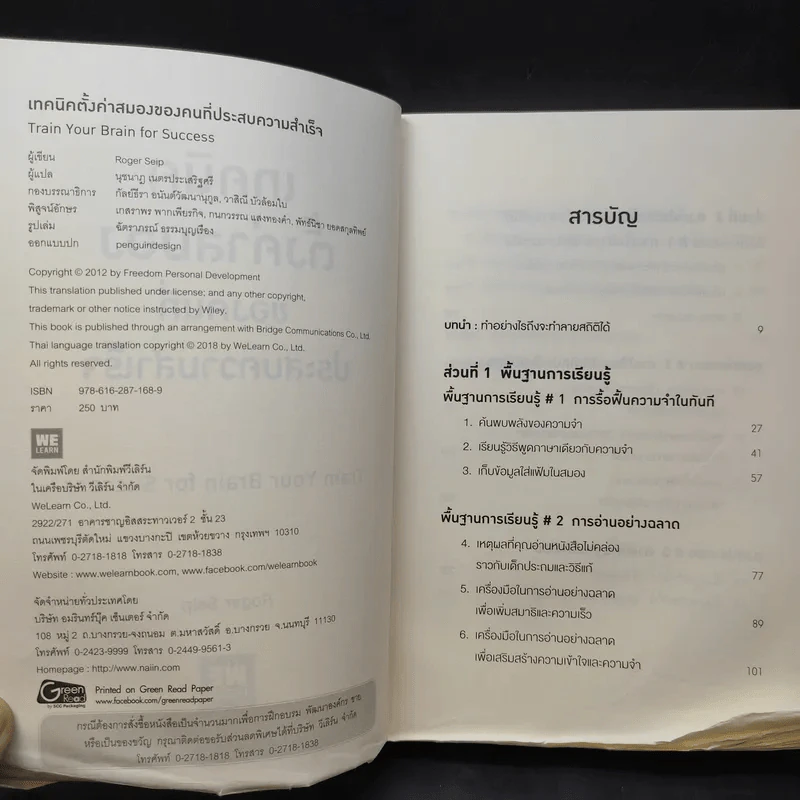 เทคนิคตั้งค่าสมองของคนที่ประสบความสำเร็จ
Train Your Brain for Success
ผู้เขียน Roger Seip
ผู้แปล นุชนาฏ เนตรประเสริฐศรี
กองบรรณาธิการ กัลย์ธีรา อนันต์วัฒนานุกูล, วาสิณี บัวล้อมใบ
พิสูจน์อักษร เกสราพร พากเพียรกิจ, กนกวรรณ แสงทองคำ, พัทธ์นิชา ยอดสกุลทิพย์
รูปเล่ม ฉัตราภรณ์ ธรรมบุญเรือง
ออกแบบปก penguindesign
Copyright © 2012 by Freedom Personal Development
This translation published under license; and any other copyright,
trademark or other notice instructed by Wiley.
This book is published through an arrangement with Bridge Communications Co., Ltd.
Thai language translation copyright © 2018 by WeLearn Co., Ltd.
All rights reserved.
ISBN 978-616-287-168-9
ราคา 250 บาท
WE
LEARN
จัดพิมพ์โดย สำนักพิมพ์วีเลิร์น
ในเครือบริษัท วีเลิร์น จำกัด
WeLearn Co., Ltd.
2922/271 อาคารชาญอิสสระทาวเวอร์ 2 ชั้น 23
ถนนเพชรบุรีตัดใหม่ แขวงบางกะปิ เขตห้วยขวาง กรุงเทพฯ 10310
โทรศัพท์ 0-2718-1818 โทรสาร 0-2718-1838
Website : www.welearnbook.com, www.facebook.com/welearnbook
จัดจำหน่ายทั่วประเทศโดย
บริษัท อมรินทร์บุ๊ค เซ็นเตอร์ จำกัด
108 หมู่ 2 ถ.บางกรวย-จงถนอม ต.มหาสวัสดิ์ อ.บางกรวย จ.นนทบุรี 11130
โทรศัพท์ 0-2423-9999 โทรสาร 0-2449-9561-3
Homepage : http://www.naiin.com
Green
Read
by SCG Packaging
Printed on Green Read Paper
www.facebook.com/greenreadpaper
กรณีต้องการสั่งซื้อหนังสือเป็นจำนวนมากเพื่อการฝึกอบรม พัฒนาองค์กร ขาย
หรือเป็นของขวัญ กรุณาติดต่อขอรับส่วนลดพิเศษได้ที่บริษัท วีเลิร์น จำกัด
โทรศัพท์ 0-2718-1818 โทรสาร 0-2718-1838
สารบัญ
บทนำ : ทำอย่างไรถึงจะทำลายสถิติได้ 9
ส่วนที่ 1 พื้นฐานการเรียนรู้
พื้นฐานการเรียนรู้ # 1 การรื้อฟื้นความจำในทันที
1. ค้นพบพลังของความจำ 27
2. เรียนรู้วิธีพูดภาษาเดียวกับความจำ 41
3. เก็บข้อมูลใส่แฟ้มในสมอง 57
พื้นฐานการเรียนรู้ # 2 การอ่านอย่างฉลาด
4. เหตุผลที่คุณอ่านหนังสือไม่คล่อง
ราวกับเด็กประถมและวิธีแก้ 77
5. เครื่องมือในการอ่านอย่างฉลาด
เพื่อเพิ่มสมาธิและความเร็ว 89
6. เครื่องมือในการอ่านอย่างฉลาด
เพื่อเสริมสร้างความเข้าใจและความจำ 101